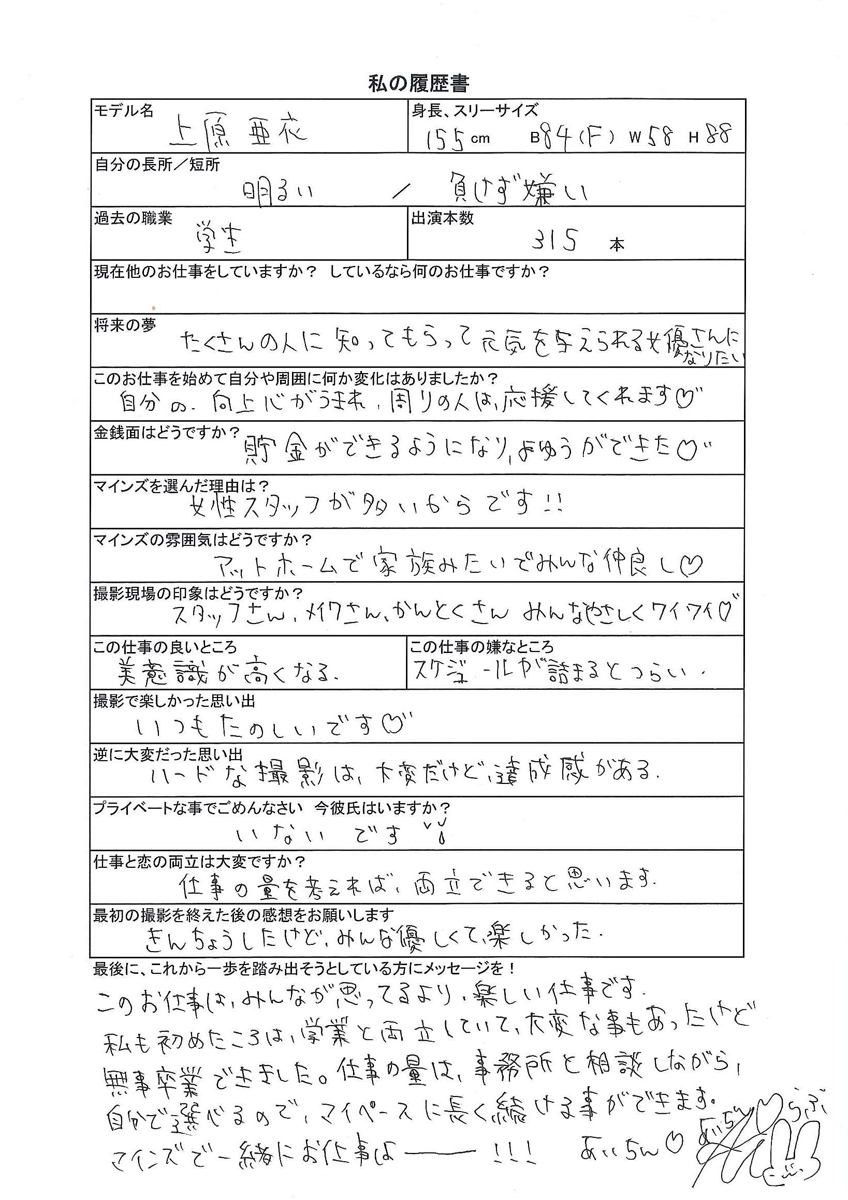 私の履歴書
モデル名
上原亜衣
身長、スリーサイズ
155cm B84(F) W58 H88
自分の長所／短所
明るい ／ 負けず嫌い
過去の職業
学生
出演本数
315 本
現在他のお仕事をしていますか？ しているなら何のお仕事ですか？
将来の夢
たくさんの人に知ってもらって元気を与えられる女優さんに
なりたい
このお仕事を始めて自分や周囲に何か変化はありましたか？
自分の、向上心がうまれ、周りの人は、応援してくれます♡
金銭面はどうですか？
貯金ができるようになり、よゆうができた♡
マインズを選んだ理由は？
女性スタッフが多いからです!!
マインズの雰囲気はどうですか？
アットホームで家族みたいでみんな仲良し♡
撮影現場の印象はどうですか？
スタッフさん、メイクさん、かんとくさん みんなやさしくワイワイ♡
この仕事の良いところ
美意識が高くなる.
この仕事の嫌なところ
スケジュールが詰まるとつらい.
撮影で楽しかった思い出
いつもたのしいです♡
逆に大変だった思い出
ハードな撮影は、大変だけど、達成感がある.
プライベートな事でごめんなさい 今彼氏はいますか？
いないです
仕事と恋の両立は大変ですか？
仕事の量を考えれば、両立できると思います.
最初の撮影を終えた後の感想をお願いします
きんちょうしたけど、みんな優しくて、楽しかった.
最後に、これから一歩を踏み出そうとしている方にメッセージを！
このお仕事は、みんなが思ってるより、楽しい仕事です.
私も初めたころは、学業と両立していて、大変な事もあったけど
無事卒業できました。仕事の量は、事務所と相談しながら、
自分で選べるので、マイペースに長く続ける事ができます。
マインズで一緒にお仕事はーーー!!! あいちん♡
あいちん♡らぶ